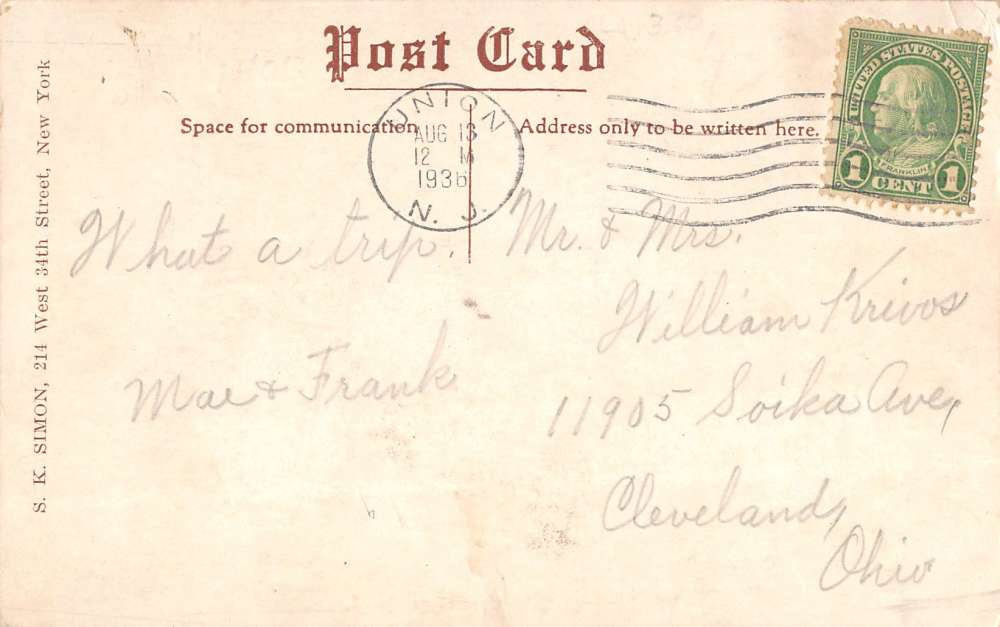 Post Card
Space for communication
Address only to be written here.
UNION
AUG 13
12 M
1936
N. J.
UNITED STATES POSTAGE
FRANKLIN
1 CENT 1
S. K. SIMON, 214 West 34th Street, New York
What a trip.
Mae & Frank
Mr. & Mrs.
William Krivos
11905 Soika Ave,
Cleveland,
Ohio